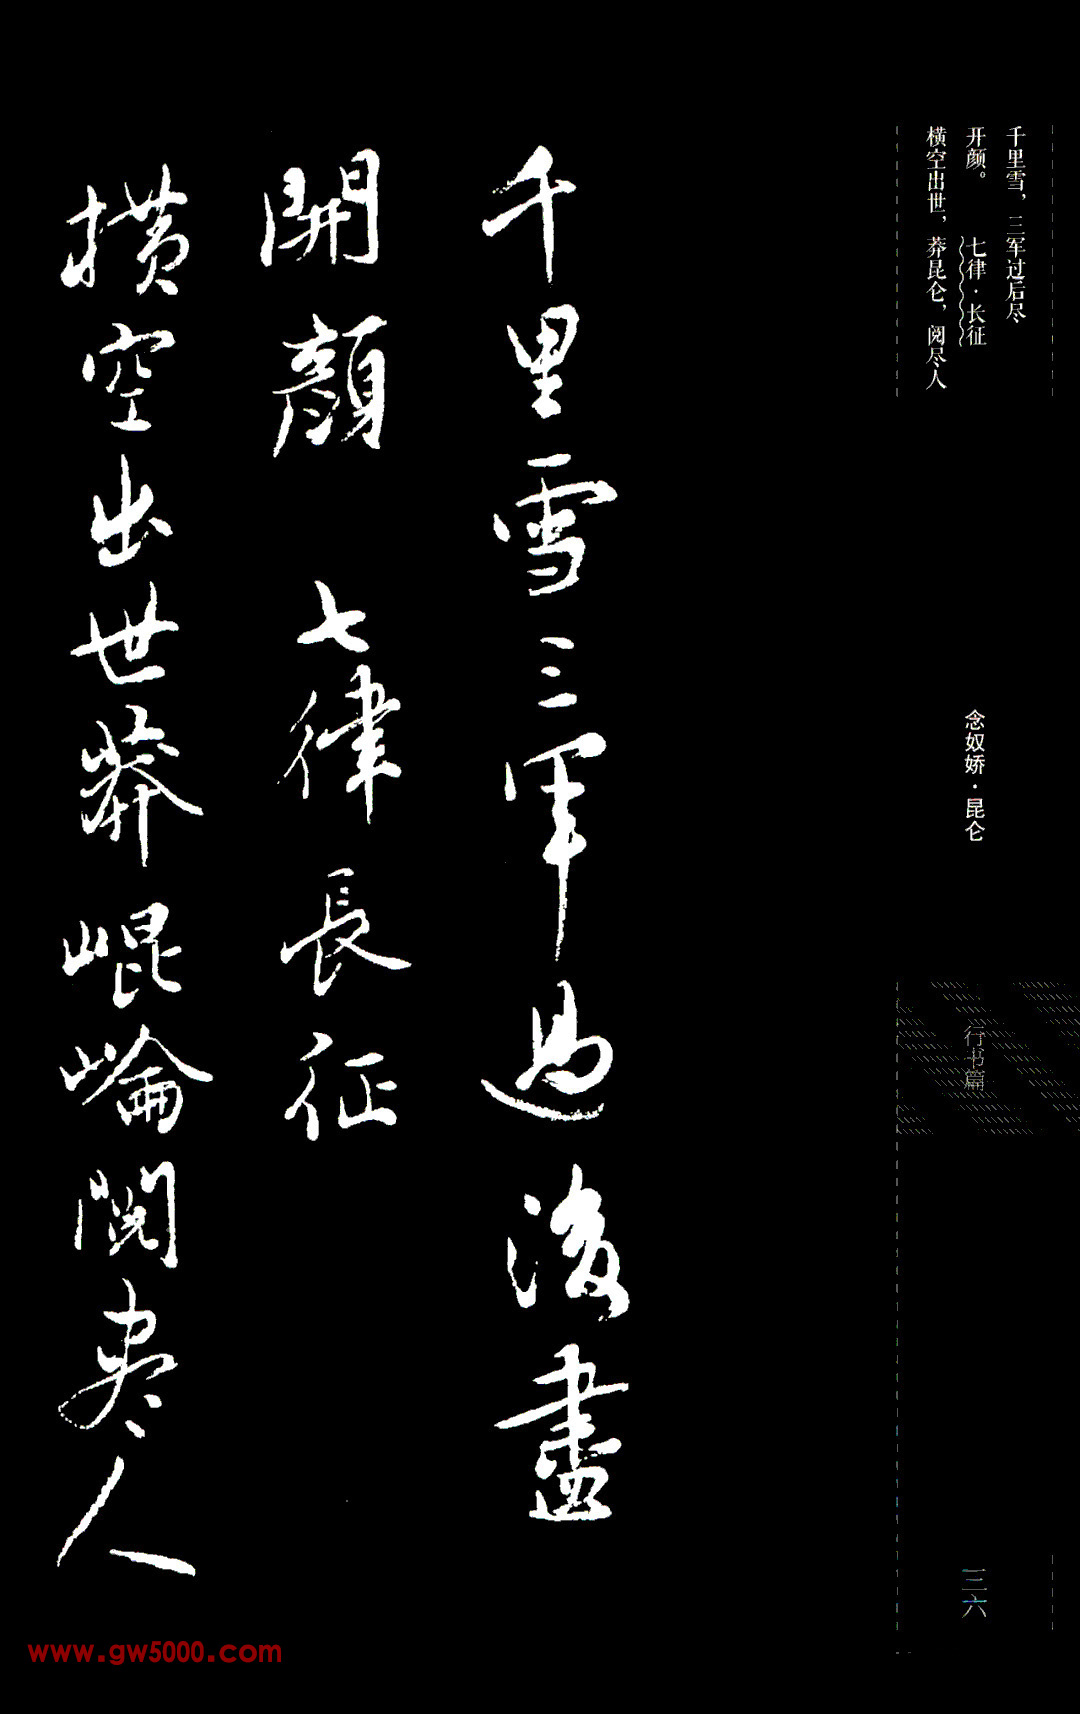 千里雪，三军过后尽
开颜。 七律·长征
横空出世，莽昆仑，阅尽人
念奴娇·昆仑
行书篇
三六
千里雪三军過後盡
開顔 七律長征
横空出世莽崐崘閲尽人
www.gw5000.com